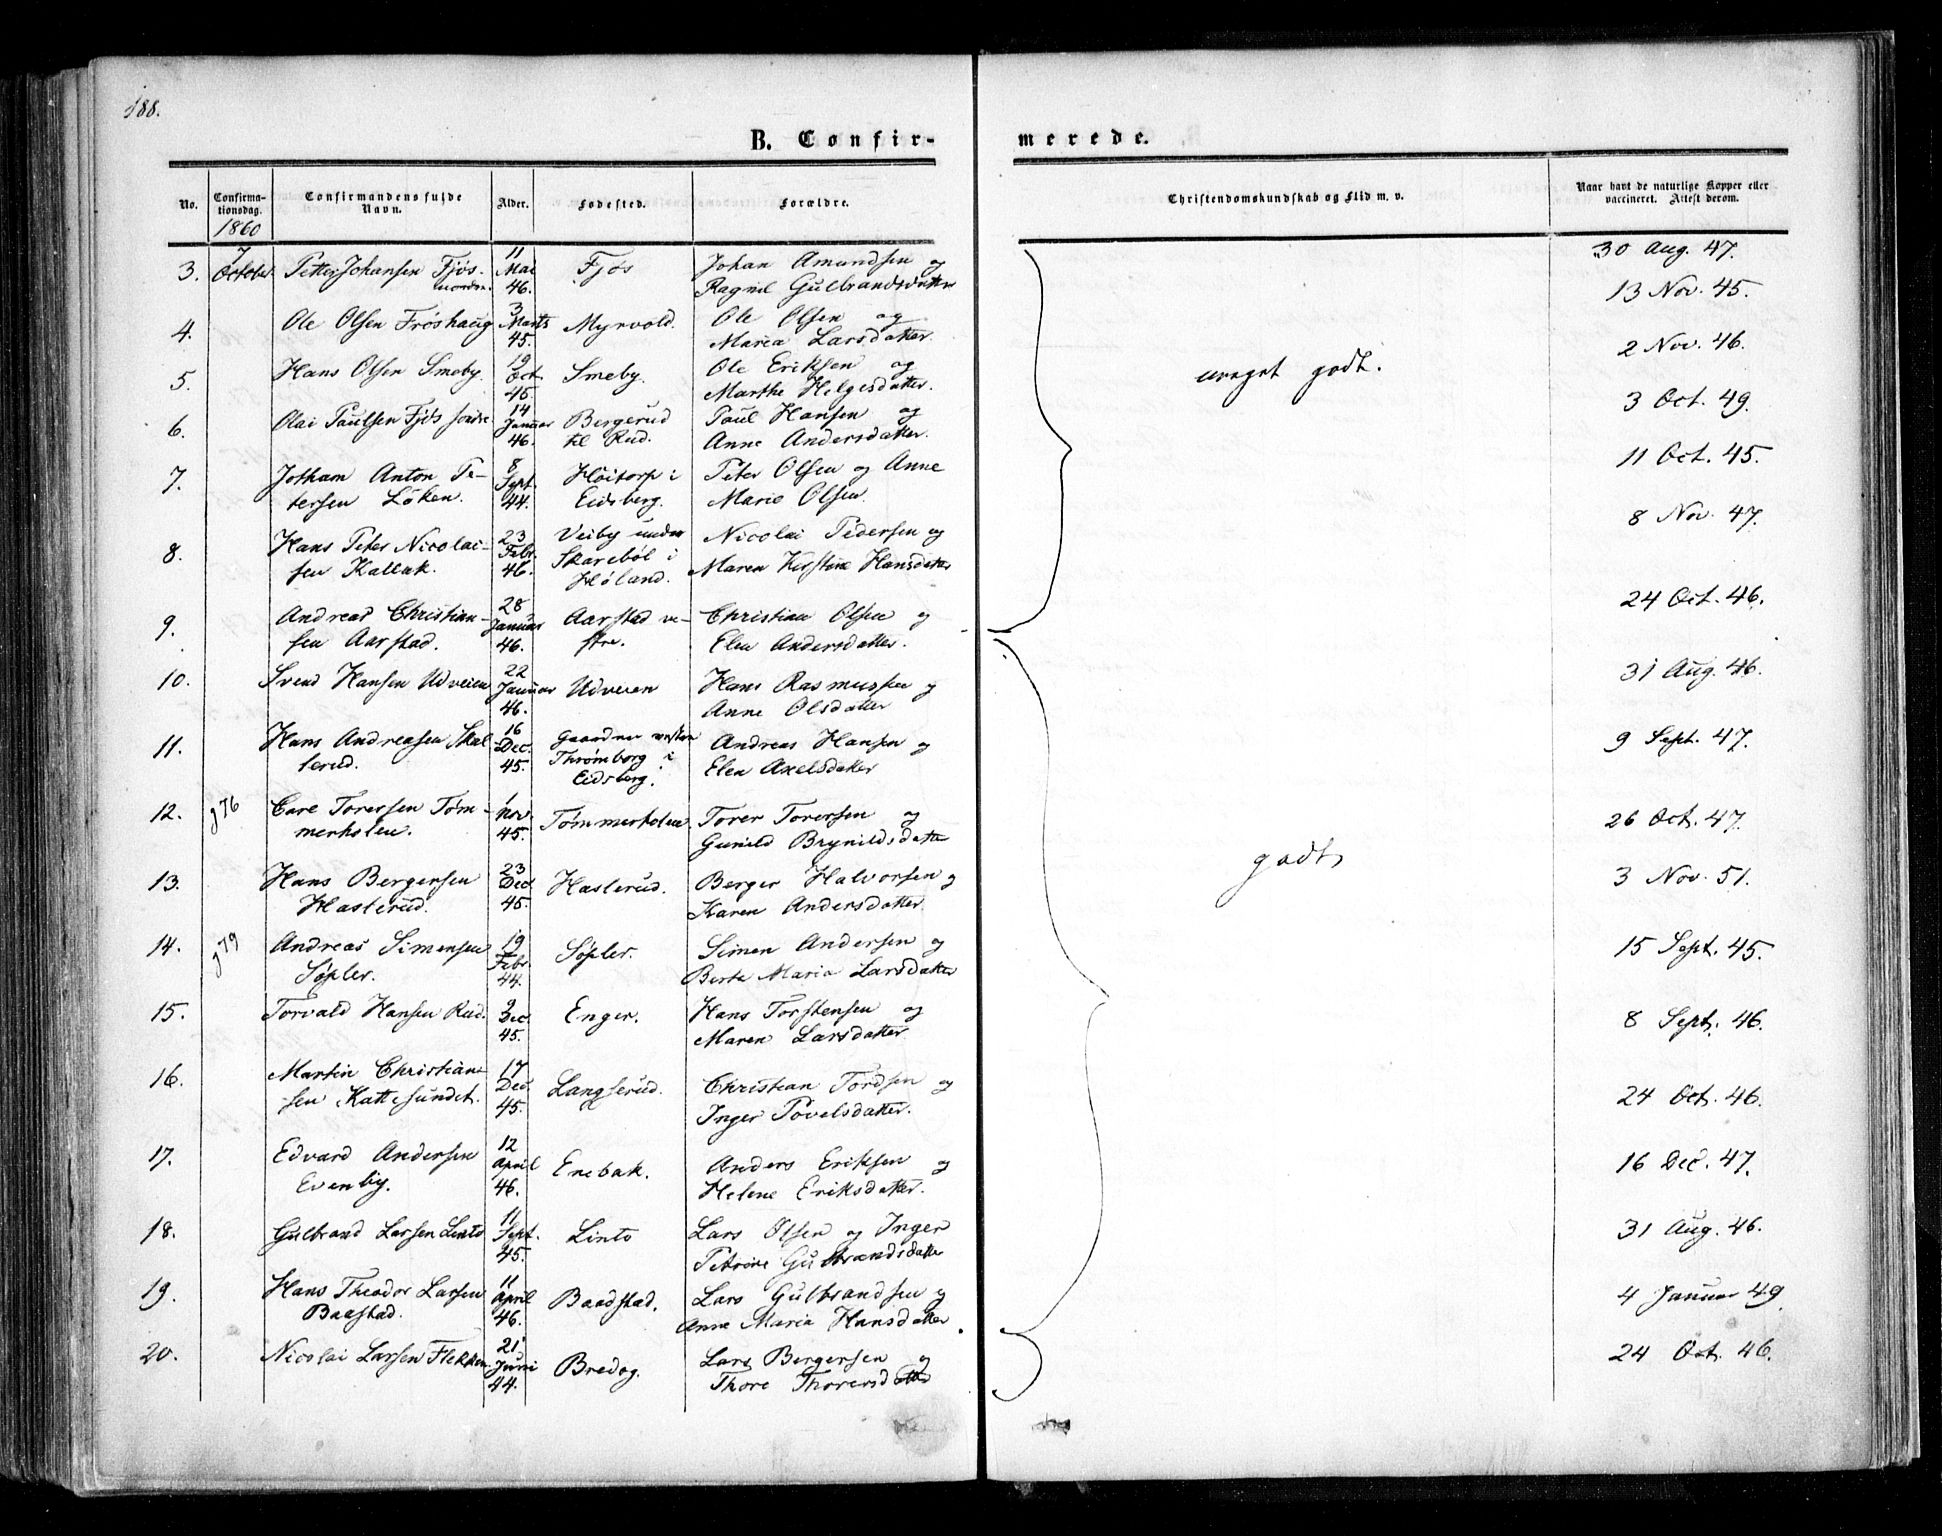 188.
B. Confir-
merede.
No.
Confirma-
tionsdag.
1860
Confirmandens fulde
Navn.
Alder.
Fødested.
Forældre.
Christendomskundskab og Flid m. v.
Naar havt de naturlige Kopper eller
vaccineret. Attest derom.
3. 7 October Petter Johansen Fjøs nordre. 11 Mai 46. Fjøs Johan Amundsen og
Ragnil Gulbrandsdatter
30 Aug. 47.
4. Ole Olsen Frøshaug 3 Marts 45. Myrvold. Ole Olsen og
Maria Larsdatter.
13 Nov. 45.
5. Hans Olsen Smeby. 19 Oct 45. Smeby. Ole Eriksen og
Marthe Helgesdatter.
2 Nov. 46.
meget godt.
6. Olai Paulsen Fjøs søndre 14 Januar 46. Bergerud
til Rud. Paul Hansen og
Anne Andersdatter.
3 Oct. 49.
7. Jotham Anton Pe-
tersen Löken. 8 Sept. 44. Høitorp i
Eidsberg. Peter Olsen og Anne
Marie Olsen.
11 Oct. 45.
8. Hans Peter Nicolai-
sen Kallak. 23 Febr. 46. Veiby under
Skareböl i
Høland. Nicolai Pedersen og
Maren Kirstine Hansdatter
8 Nov. 47.
9. Andreas Christian-
sen Aarstad. 28 Januar 46. Aarstad ve-
stre. Christian Olsen og
Elen Andersdatter.
24 Oct. 46.
10. Svend Hansen Udveien 22 Januar 46. Udveien Hans Rasmussen og
Anne Olsdatter
31 Aug. 46.
11. Hans Andreasen Skal-
lerud. 16 Dec. 45. Gaarden vestre
Thrømborg i
Eidsberg. Andreas Hansen og
Elen Axelsdatter
9 Sept. 47.
12. g 76 Care Torersen Tøm-
merholen. 1 Nov. 45. Tømmerholen. Torer Torersen og
Gunild Brynildsdatter
26 Oct. 47.
13. Hans Bergersen
Haslerud. 23 Dec 45. Haslerud. Berger Halvorsen og
Karen Andersdatter.
3 Nov. 51.
godt,
14. g 79 Andreas Simensen
Søpler. 19 Febr. 44. Søpler. Simen Andersen og
Berte Maria Larsdatter
15 Sept. 45.
15. Torvald Hansen Rud. 9 Dec. 45. Enger. Hans Torstensen og
Maren Larsdatter
8 Sept. 46.
16. Martin Christian-
sen Kattesundet. 17 Dec. 45. Langserud. Christian Tordsen og
Inger Povelsdatter.
24 Oct. 46.
17. Edvard Andersen
Evenby. 12 April 46. Enebak. Anders Eriksen og
Helene Eriksdatter.
16 Dec. 47.
18. Gulbrand Larsen Linto 11 Sept. 45. Linto Lars Olsen og Inger
Petrine Gulbrandsdatter
31 Aug. 46.
19. Hans Theodor Larsen
Baastad. 11 April 46. Baadstad. Lars Gulbrandsen og
Anne Maria Hansdatter.
4 Januar 49.
20. Nicolai Larsen Flekken. 21 Juni 44. Bredog. Lars Bergersen og
Thore Thorersdatter
24 Oct. 46.